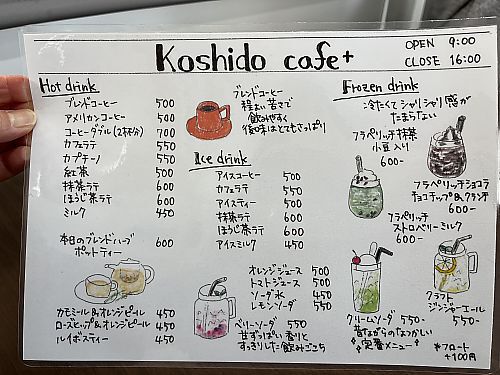 Koshido cafe+
OPEN 9:00
CLOSE 16:00
Hot drink
ブレンドコーヒー 500
アメリカンコーヒー 500
コーヒーダブル(2杯分) 700
カフェラテ 550
カプチーノ 550
紅茶 500
抹茶ラテ 600
ほうじ茶ラテ 600
ミルク 450
本日のブレンドハーブ 600
ポットティー
カモミール&オレンジピール 450
ローズヒップ&オレンジピール 450
ルイボスティー 450
ブレンドコーヒー
程よい苦さで
飲みやすく
後味はとてもさっぱり
Ice drink
アイスコーヒー 500
カフェラテ 550
アイスティー 500
抹茶ラテ 600
ほうじ茶ラテ 600
アイスミルク 450
オレンジジュース 500
トマトジュース 500
ソーダ水 450
レモンソーダ 550
ベリーソーダ 550
甘ずっぱい香りと
すっきりした飲みごこち
Frozen drink
冷たくてシャリシャリ感が
たまらない
フラペリッチ抹茶
小豆入り
600-
フラペリッチショコラ
チョコチップ&クランチ
600-
フラペリッチ
ストロベリーミルク
600-
クリームソーダ 550-
昔ながらのなつかしい
定番メニュー
クラフト
ジンジャーエール
550-
*フロート
+100円